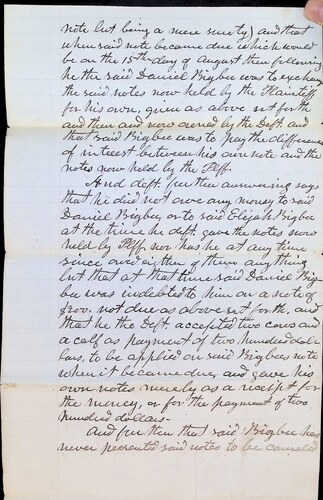 note but being a mere surety) and that
when said note became due which would
be on the 15th day of August then following
he the said Daniel Bigbee was to exchange
the said notes now held by the Plaintiff
for his own, given as above set forth
and then and now owned by the Deft. and
that said Bigbee was to pay the difference
of interest between his own note and the
notes now held by the Plff.
And deft. further answering says
that he did not owe any money to said
Daniel Bigbee or to said Elijah Bigbee
at the time he deft. gave the notes now
held by Plff. nor has he at any time
since owed either of them anything
but that at that time said Daniel Big
bee was indebted to him on a note of
$200. not due as above set forth, and
that he the Deft. accepted two cows and
a calf as payment of two hundred dol-
lars, to be applied on said Bigbees note
when it became due, and gave his
own notes merely as a receipt for
the money, or for the payment of two
hundred dollars.
And further that said Bigbee has
never presented said notes to be canceled